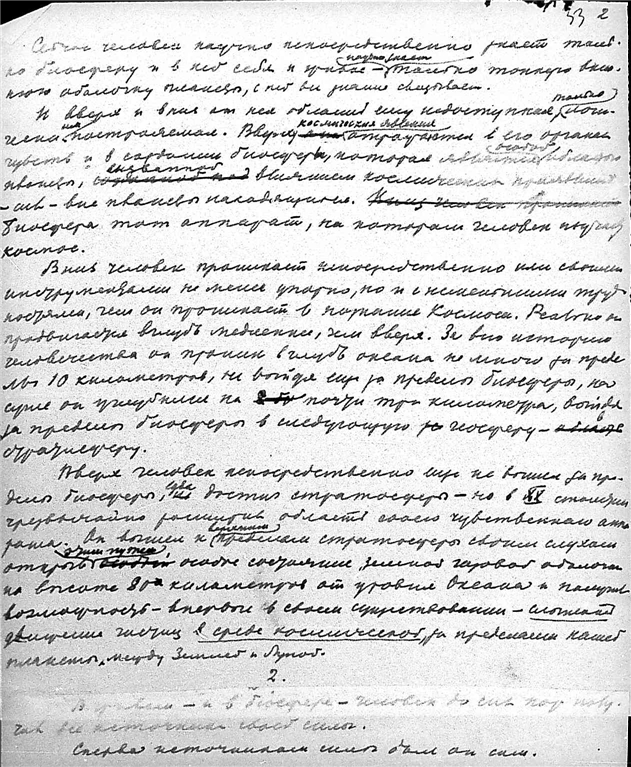 33 2
Сейчас человек научно непосредственно знает толь-
ко биосферу и в ней себя и
научно знает
только тонкую внеш-
нюю оболочку планеты, с ней он
И вверх и вниз от нея области еще недоступная, только
им построяемая. Вверху космическия явления отражаются в его органах
чувств и в создании биосферы, которая является особой областью
планеты, созданной под вызванной влиянием космических проявлений
сил - вне планеты находящихся.
Биосфера тот аппарат, на котором человек изучает
космос.
Вниз человек проникает непосредственно или своими
инструментами не менее упорно, но и с неменьшими труд-
ностями, чем он проникает в познание Космоса. Реально он
продвигается вглубь медленнее, чем вверх. За всю историю
человечества он проник в глубь океана не много за преде-
лы 10 километров, не выйдя еще за пределы биосферы, на
суше он углубился на почти три километра, выйдя
за пределы биосферы в следующую геосферу -
стратисферу.
Вверх человек непосредственно еще не вышел за пре-
делы биосферы, едва достиг стратосферы - но в XX столетии
чрезвычайно расширил область своего чувственного аппа-
рата. Он вышел к верхним пределам стратосферы своим слухом
открыв этим путем особое состояние земной газовой оболочки
на высоте 80 километров от уровня Океана и получил
возможность - впервые в своем существовании -
движение частиц в среде космической, за пределами нашей
планеты, между Землей и Луной.
2.
В - и в биосфере - человек до сих пор полу-
чал все источники своей силы.
Сперва источником силы был он сам.